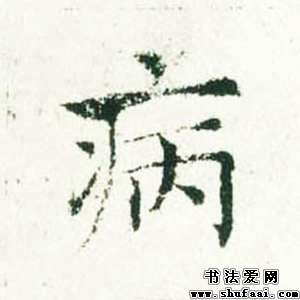 病
书法爱网
www.shufaai.com